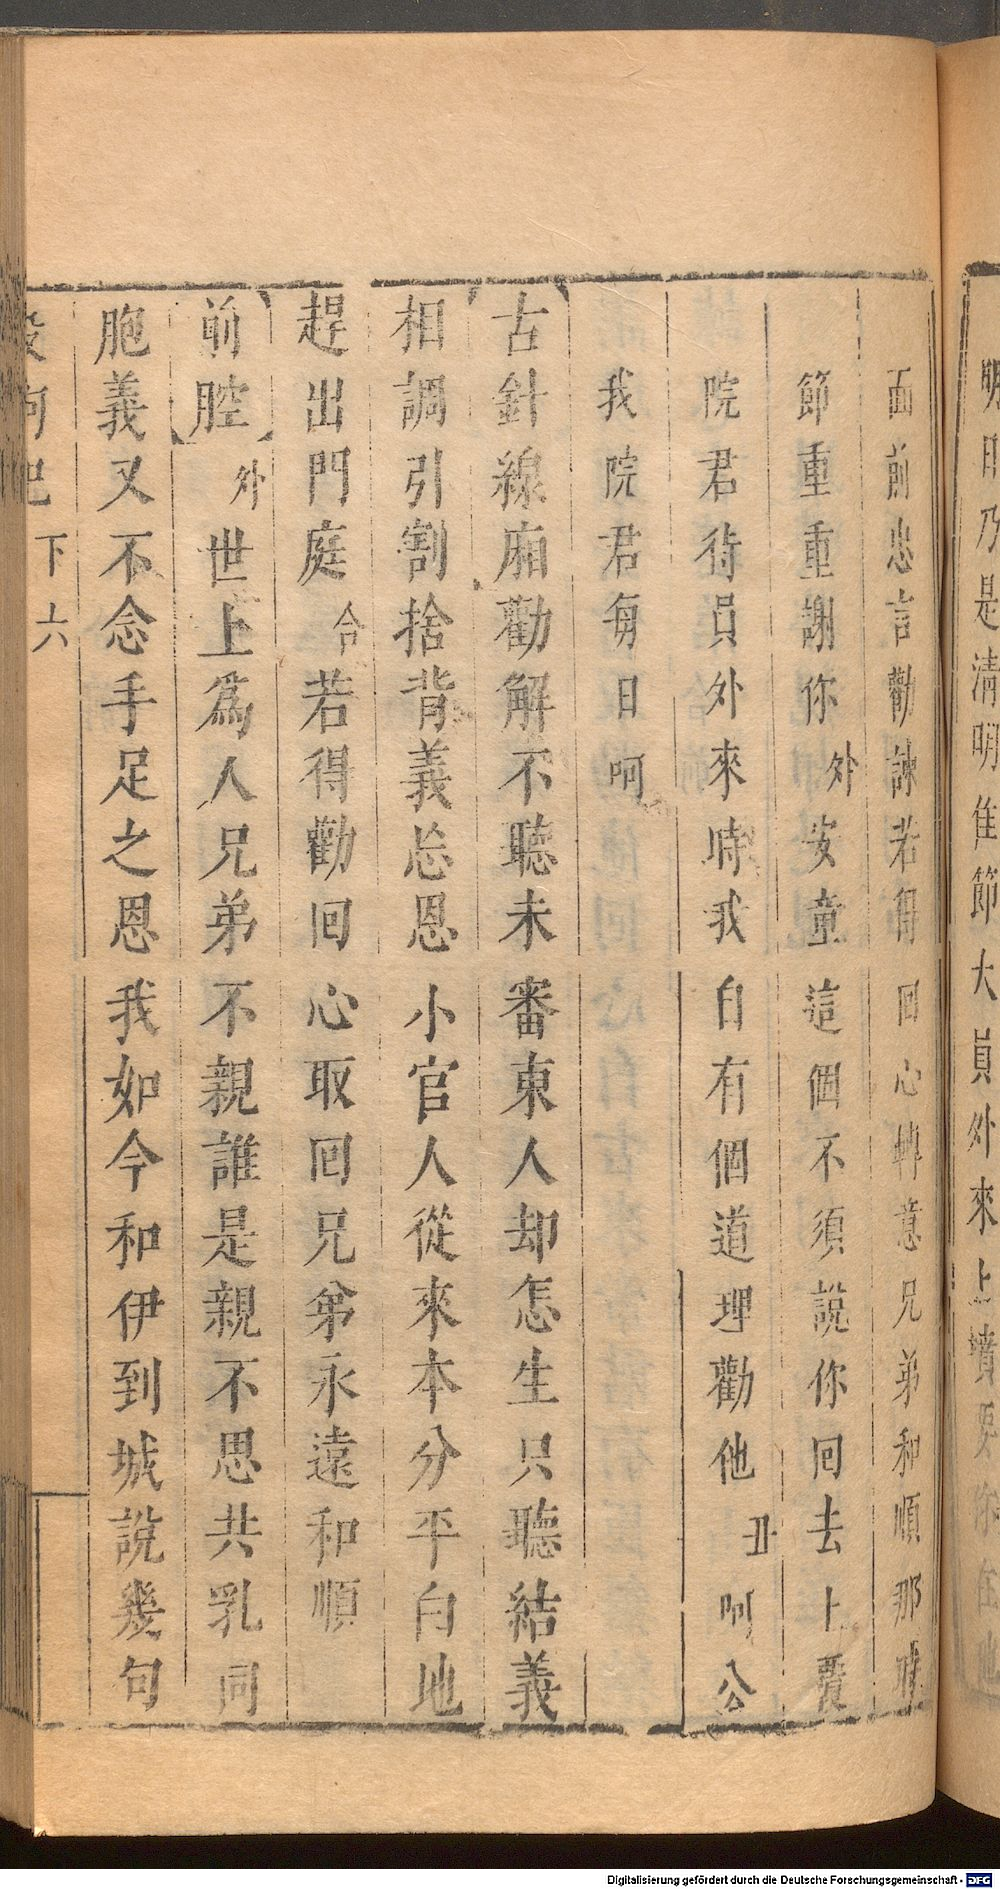 明日乃是清明佳節大員外來上墳
面前忠言勸諫若得回心轉意兄弟和順那時
節重重謝你外安童這個不須說你回去上覆
院君待員外來時我自有個道理勸他丑呵公
我院君每日呵
古針線廂勸解不聽未審東人却怎生只聽結義
相調引割捨背義忘恩小官人從來本分平白地
趕出門庭合若得勸回心取回兄弟永遠和順
前腔外世上爲人兄弟不親誰是親不思共乳同
胞義又不念手足之恩我如今和伊到城說幾句
殺狗巴下六
Digitalisierung gefördert durch die Deutsche Forschungsgemeinschaft - DFG